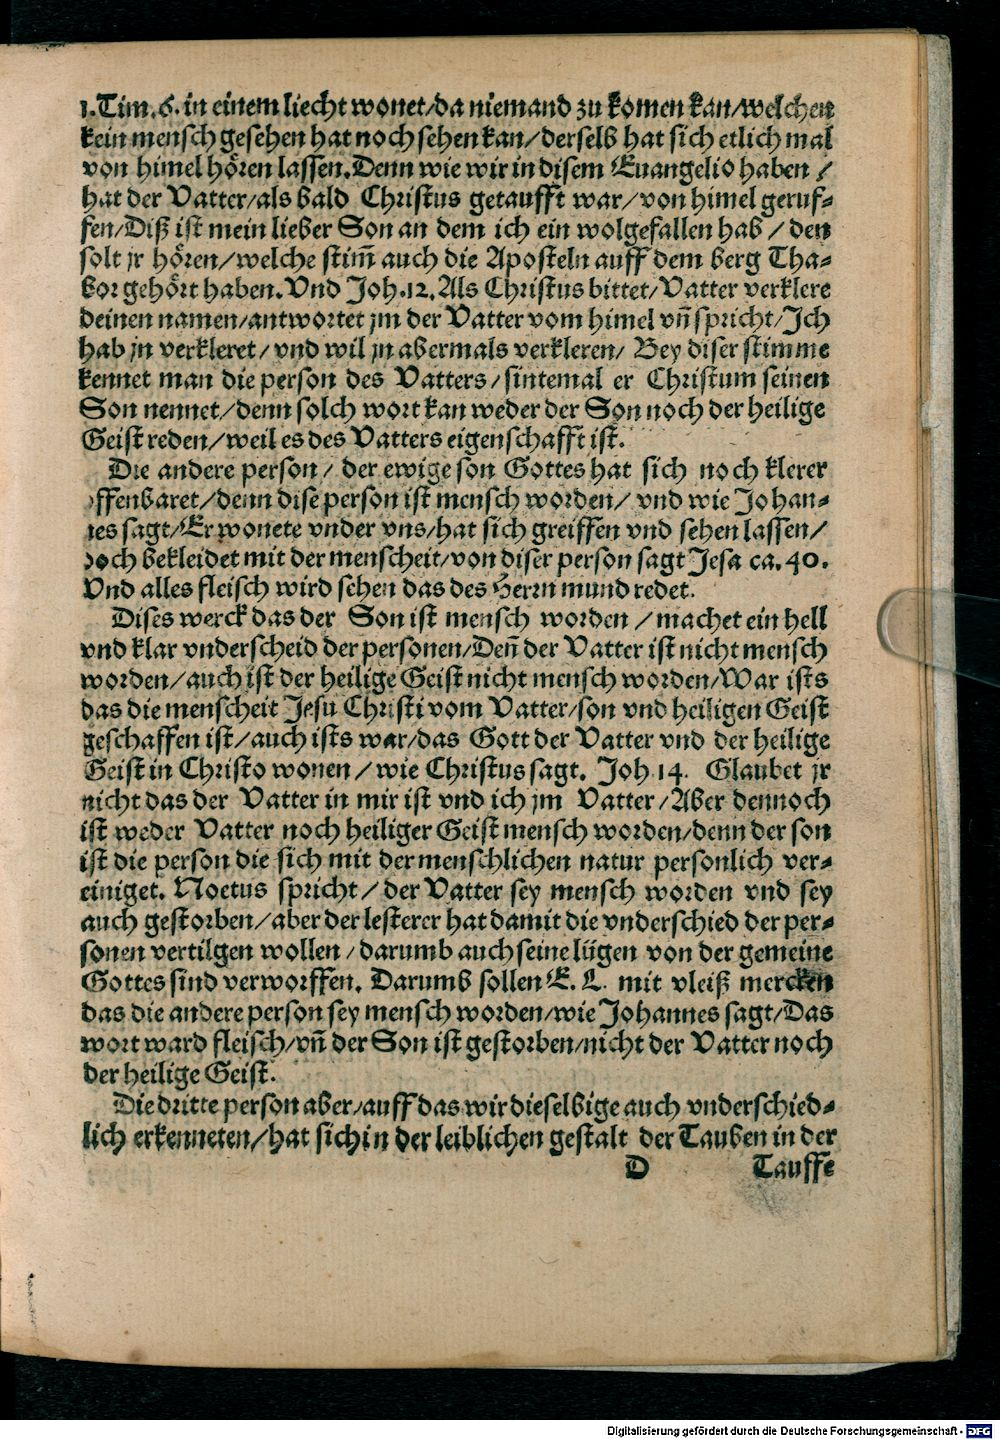 1. Tim. 6. in einem liecht wonet/da niemand zu komen kan/welchen
kein mensch gesehen hat noch sehen kan/derselb hat sich etlich mal
von himel hören lassen. Denn wie wir in disem Euangelio haben /
hat der Vatter/als bald Christus getaufft war/von himel geruf-
fen/Diß ist mein lieber Son an dem ich ein wolgefallen hab / den
solt jr hören/welche stim̄ auch die Aposteln auff dem berg Tha-
bor gehört haben. Vnd Joh. 12. Als Christus bittet/Vatter verklere
deinen namen/antwortet jm der Vatter vom himel vn̄ spricht/Ich
hab jn verkleret/vnd wil jn abermals verkleren/ Bey diser stimme
kennet man die person des Vatters/sintemal er Christum seinen
Son nennet/denn solch wort kan weder der Son noch der heilige
Geist reden/weil es des Vatters eigenschafft ist.
Die andere person/ der ewige son Gottes hat sich noch klerer
offenbaret/denn dise person ist mensch worden/ vnd wie Johan-
nes sagt/Er wonete vnder vns/hat sich greiffen vnd sehen lassen/
doch bekleidet mit der menscheit/von diser person sagt Jesa ca. 40.
Vnd alles fleisch wird sehen das des Herrn mund redet.
Dises werck das der Son ist mensch worden /machet ein hell
vnd klar vnderscheid der personen/Den̄ der Vatter ist nicht mensch
worden/auch ist der heilige Geist nicht mensch worden/War ists
das die menscheit Jesu Christi vom Vatter/son vnd heiligen Geist
geschaffen ist/auch ists war/das Gott der Vatter vnd der heilige
Geist in Christo wonen /wie Christus sagt. Joh 14. Glaubet jr
nicht das der Vatter in mir ist vnd ich jm Vatter/Aber dennoch
ist weder Vatter noch heiliger Geist mensch worden/denn der son
ist die person die sich mit der menschlichen natur personlich ver-
einiget. Noetus spricht/ der Vatter sey mensch worden vnd sey
auch gestorben/aber der lesterer hat damit die vnderschied der per-
sonen vertilgen wollen/darumb auch seine lügen von der gemeine
Gottes sind verworffen. Darumb sollen E. L. mit vleiß mercken
das die andere person sey mensch worden/wie Johannes sagt/Das
wort ward fleisch/vn̄ der Son ist gestorben/nicht der Vatter noch
der heilige Geist.
Die dritte person aber/auff das wir dieselbige auch vnderschied-
lich erkenneten/hat sich in der leiblichen gestalt der Tauben in der
D Tauffe
Digitalisierung gefördert durch die Deutsche Forschungsgemeinschaft - DFG